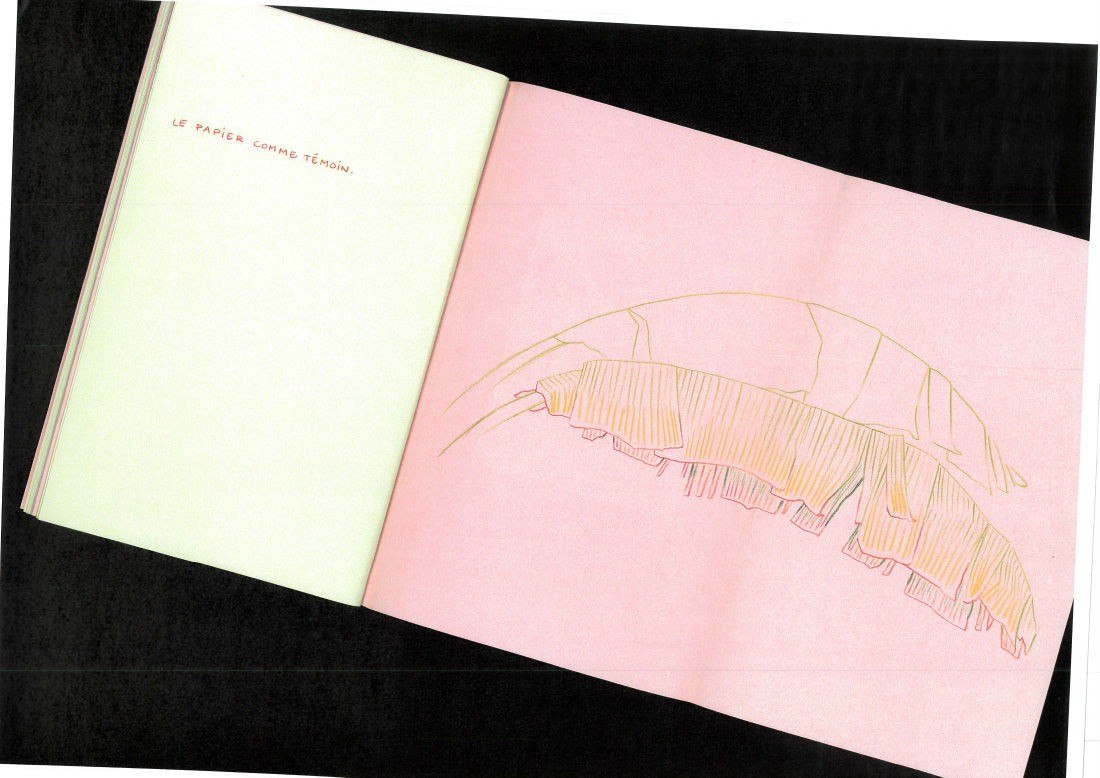 LE PAPIER COMME TÉMOIN.